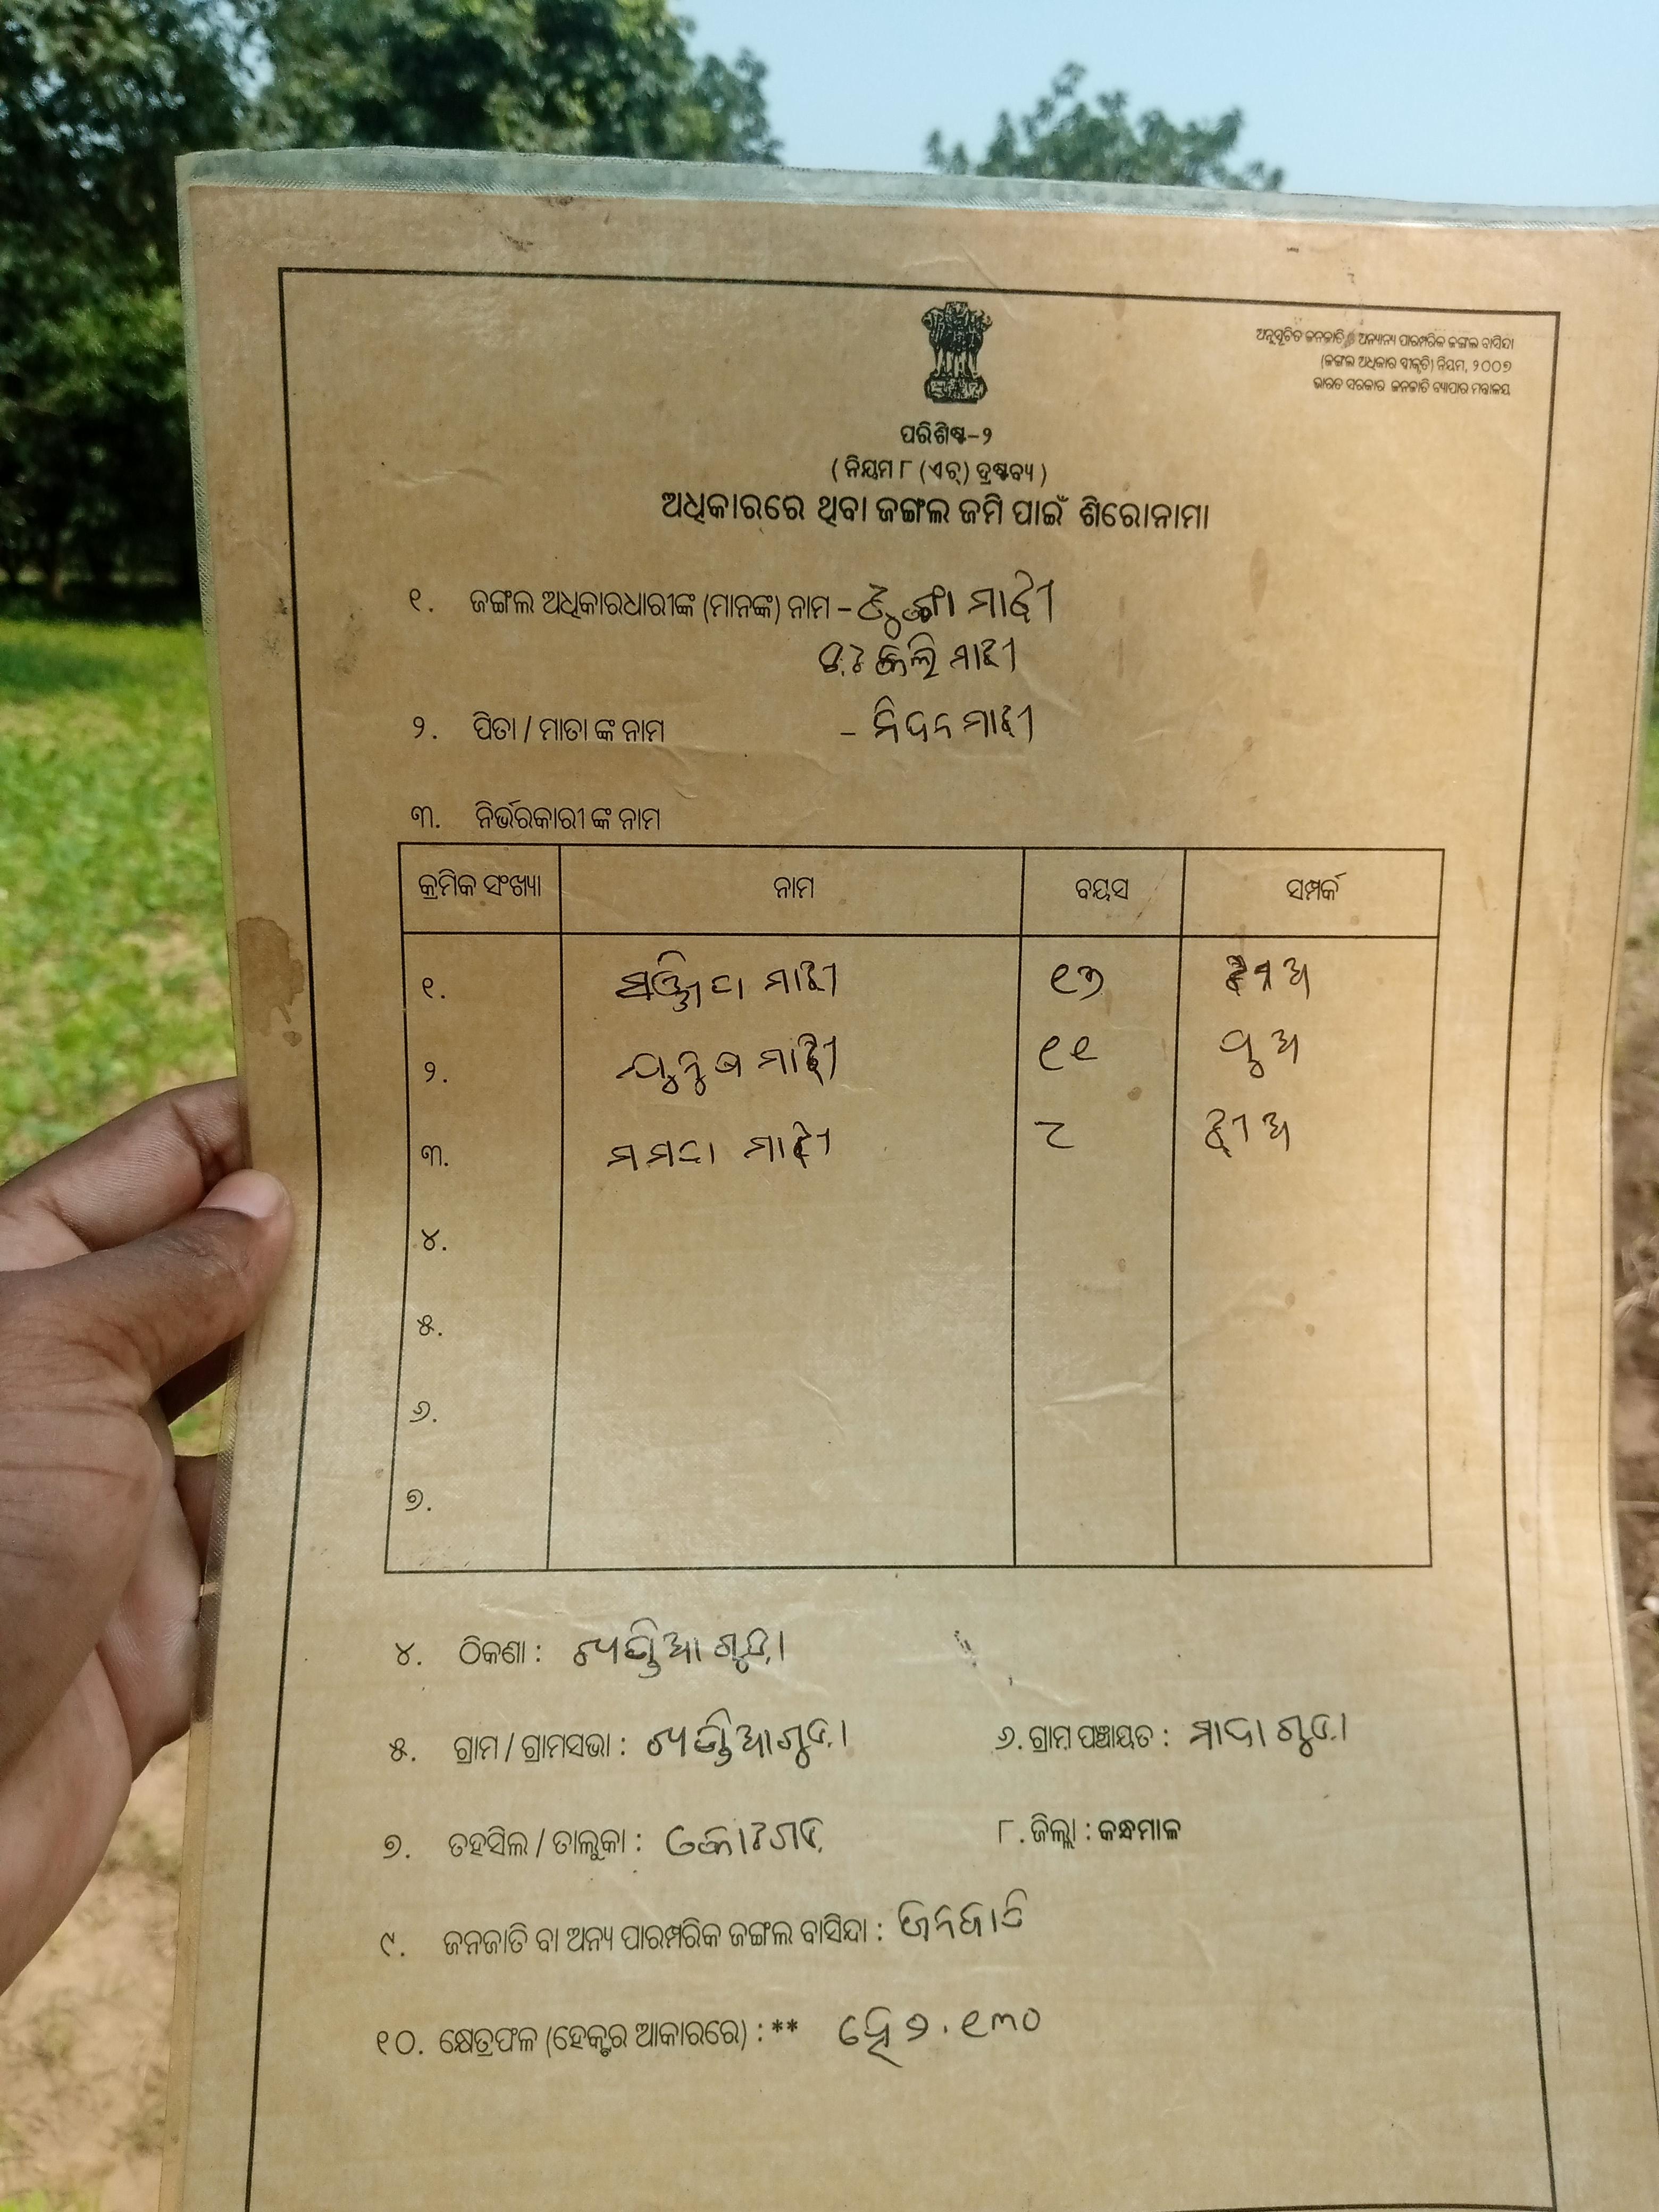 ଅନୁସୂଚିତ ଜନଜାତି ଓ ଅନ୍ୟାନ୍ୟ ପାରମ୍ପରିକ ଜଙ୍ଗଲ ବାସିନ୍ଦା
(ଜଙ୍ଗଲ ଅଧିକାର ସ୍ୱୀକୃତି) ନିୟମ, ୨୦୦୭
ଭାରତ ସରକାର ଜନଜାତି ବ୍ୟାପାର ମନ୍ତ୍ରାଳୟ
ପରିଶିଷ୍ଟ-୨
( ନିୟମ ୮ (ଏଚ୍) ଦ୍ରଷ୍ଟବ୍ୟ )
ଅଧିକାରରେ ଥିବା ଜଙ୍ଗଲ ଜମି ପାଇଁ ଶିରୋନାମା
୧. ଜଙ୍ଗଲ ଅଧିକାରଧାରୀଙ୍କ (ମାନଙ୍କ) ନାମ – ମାଝୀ
ମାଝୀ
୨. ପିତା / ମାତା ଙ୍କ ନାମ – ମାଝୀ
୩. ନିର୍ଭରକାରୀ ଙ୍କ ନାମ
କ୍ରମିକ ସଂଖ୍ୟା ନାମ ବୟସ ସମ୍ପର୍କ
୧. ମାଝୀ ୧୭ ଝିଅ
୨. ମାଝୀ ୧୧ ପୁଅ
୩. ମମତା ମାଝୀ ୮ ଝୀଅ
୪.
୫.
୬.
୭.
୪. ଠିକଣା :
୫. ଗ୍ରାମ / ଗ୍ରାମସଭା : ୬. ଗ୍ରାମ ପଞ୍ଚାୟତ :
୭. ତହସିଲ / ତାଲୁକା : ୮. ଜିଲ୍ଲା : କନ୍ଧମାଳ
୯. ଜନଜାତି ବା ଅନ୍ୟ ପାରମ୍ପରିକ ଜଙ୍ଗଲ ବାସିନ୍ଦା : ଜନଜାତି
୧୦. କ୍ଷେତ୍ରଫଳ (ହେକ୍ଟର ଆକାରରେ) : ** ହେ ୨.୧୩୦